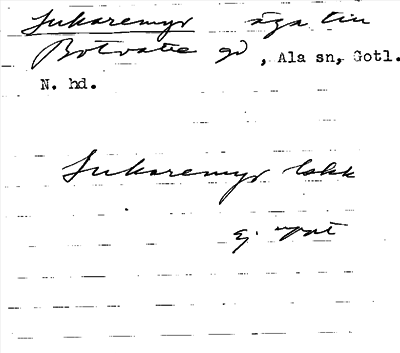 Sukaremyr äga tin
Botvatte gd, Ala sn, Gotl.
N. hd.
Sukaremyr lokk
Ej uppt